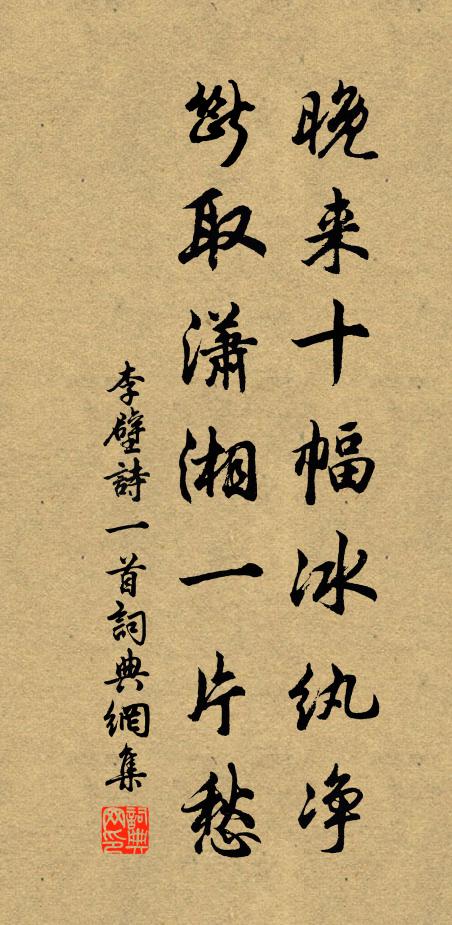 晚来十幅冰纨净
断取潇湘一片愁
李壁詩一首詞典網集
詞典网印